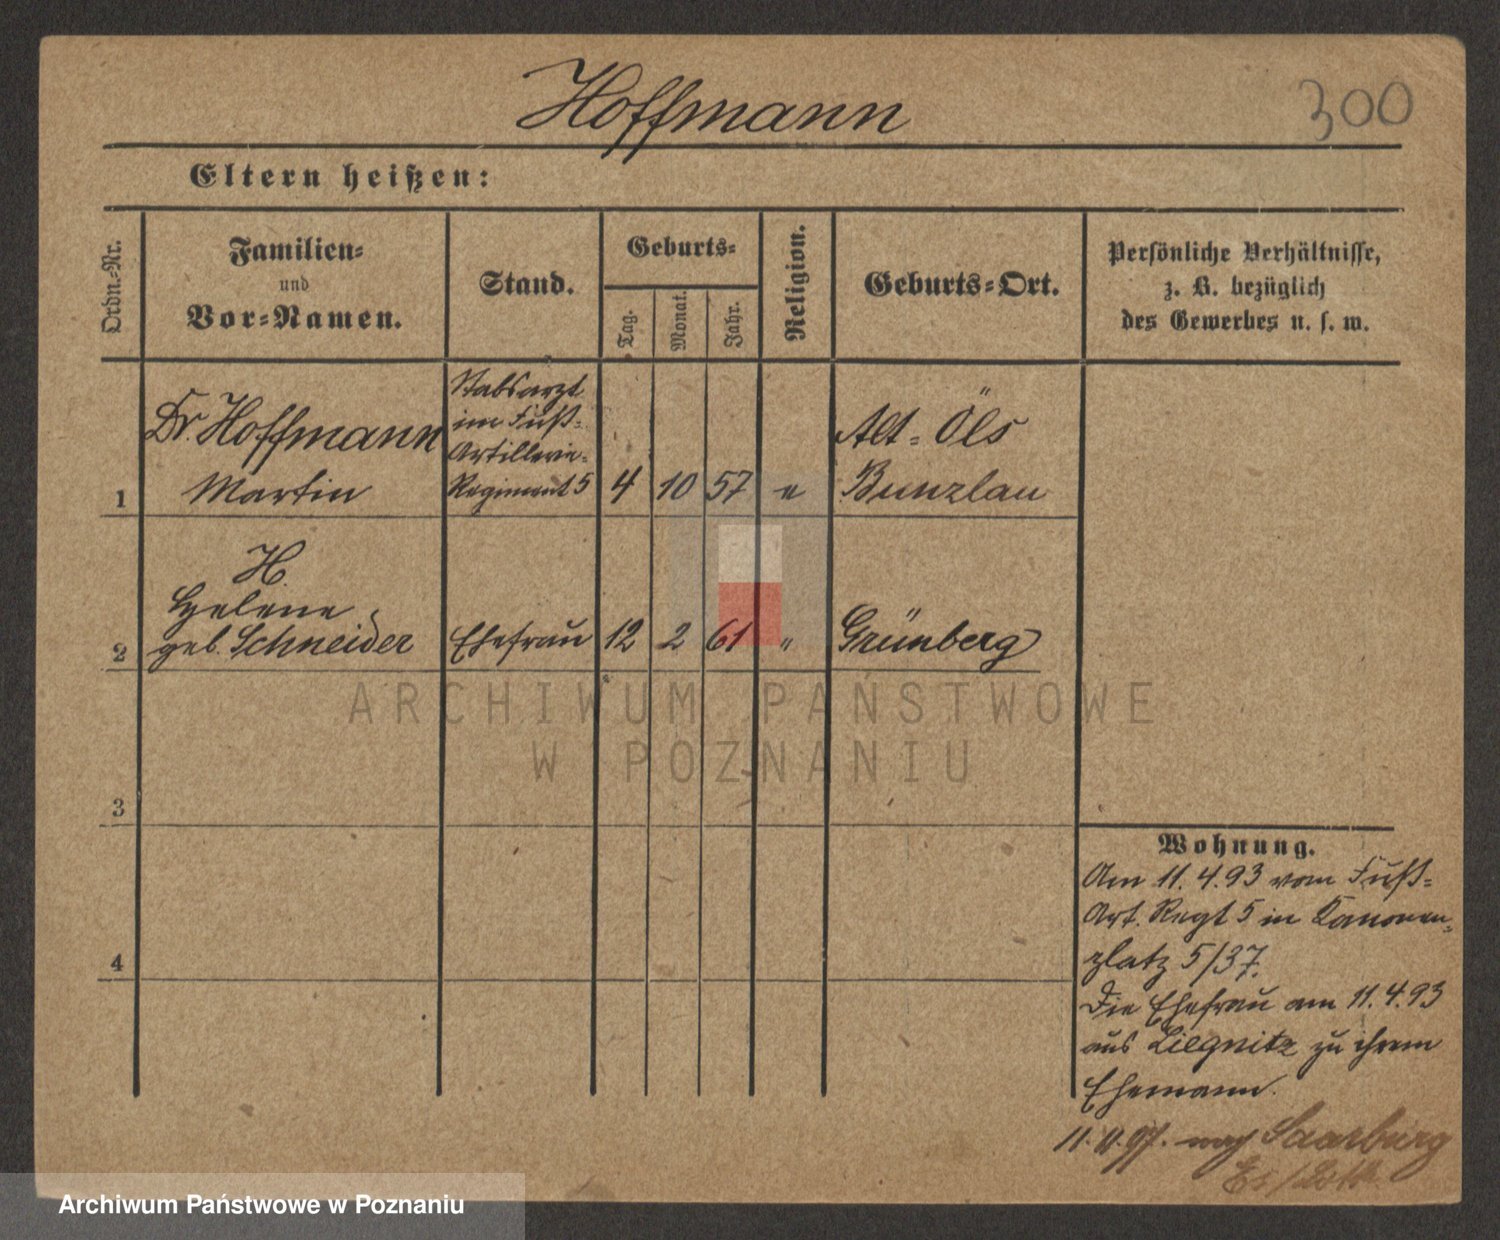 Hoffmann
300
Eltern heißen:
Ordn.-Nr.
Familien-
und
Vor-Namen.
Stand.
Geburts-
Tag.
Monat.
Jahr.
Religion.
Geburts-Ort.
Persönliche Verhältnisse,
z. B. bezüglich
des Gewerbes u. s. w.
1
Dr. Hoffmann
Martin
Stabsarzt
im Fuß-
Artillerie-
Regiment 5
4
10
57
e
Alt-Öls
Bunzlau
2
H.
Helene
geb. Schneider
Ehefrau
12
2
61
"
Grünberg
3
4
Wohnung.
Am 11.4.93 vom Fuß-
Art. Regt 5 in Kanonen-
platz 5/37.
Die Ehefrau am 11.4.93
aus Liegnitz zu ihrem
Ehemann.
11. 11. 97. nach Saarburg
ARCHIWUM PAŃSTWOWE
W POZNANIU
Archiwum Państwowe w Poznaniu